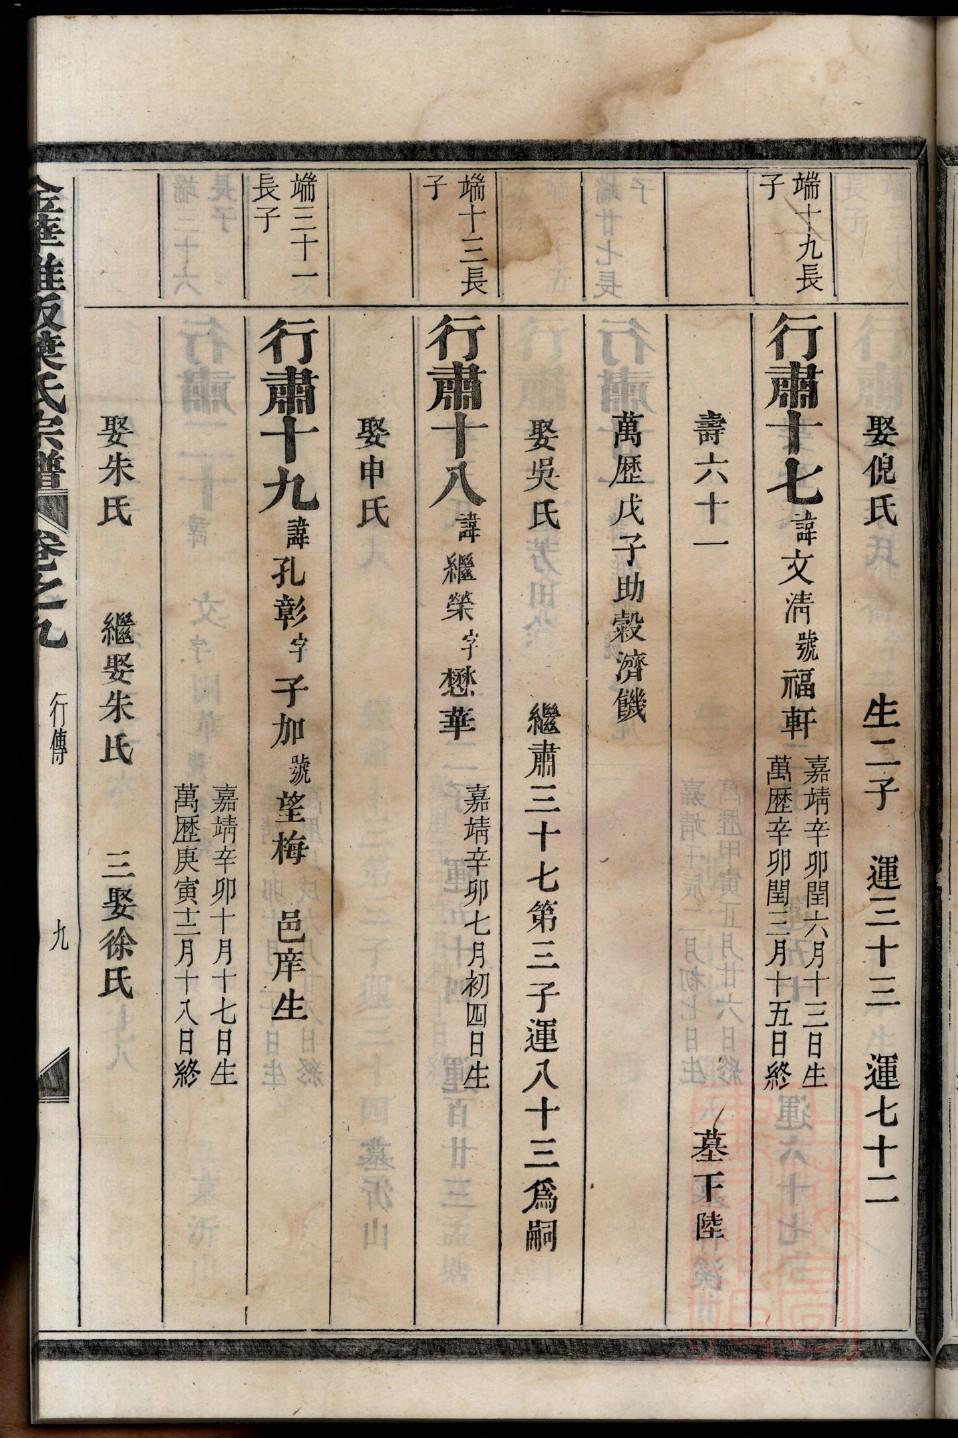 娶倪氏　生二子　運三十三　運七十二
端十九長子
行肅十七 諱文淸 號福軒 嘉靖辛卯閏六月十三日生 萬歷辛卯閏三月十五日終
壽六十一　墓下陸
萬歷戊子助穀濟饑
娶吳氏　繼肅三十七第三子運八十三爲嗣
端十三長子
行肅十八 諱繼榮 字懋華 嘉靖辛卯七月初四日生
娶申氏
端三十一長子
行肅十九 諱孔彰 字子加 號望梅　邑庠生
嘉靖辛卯十月十七日生 萬歷庚寅十二月十八日終
娶朱氏　繼娶朱氏　三娶徐氏
葉氏宗譜 卷之九 行傳 九